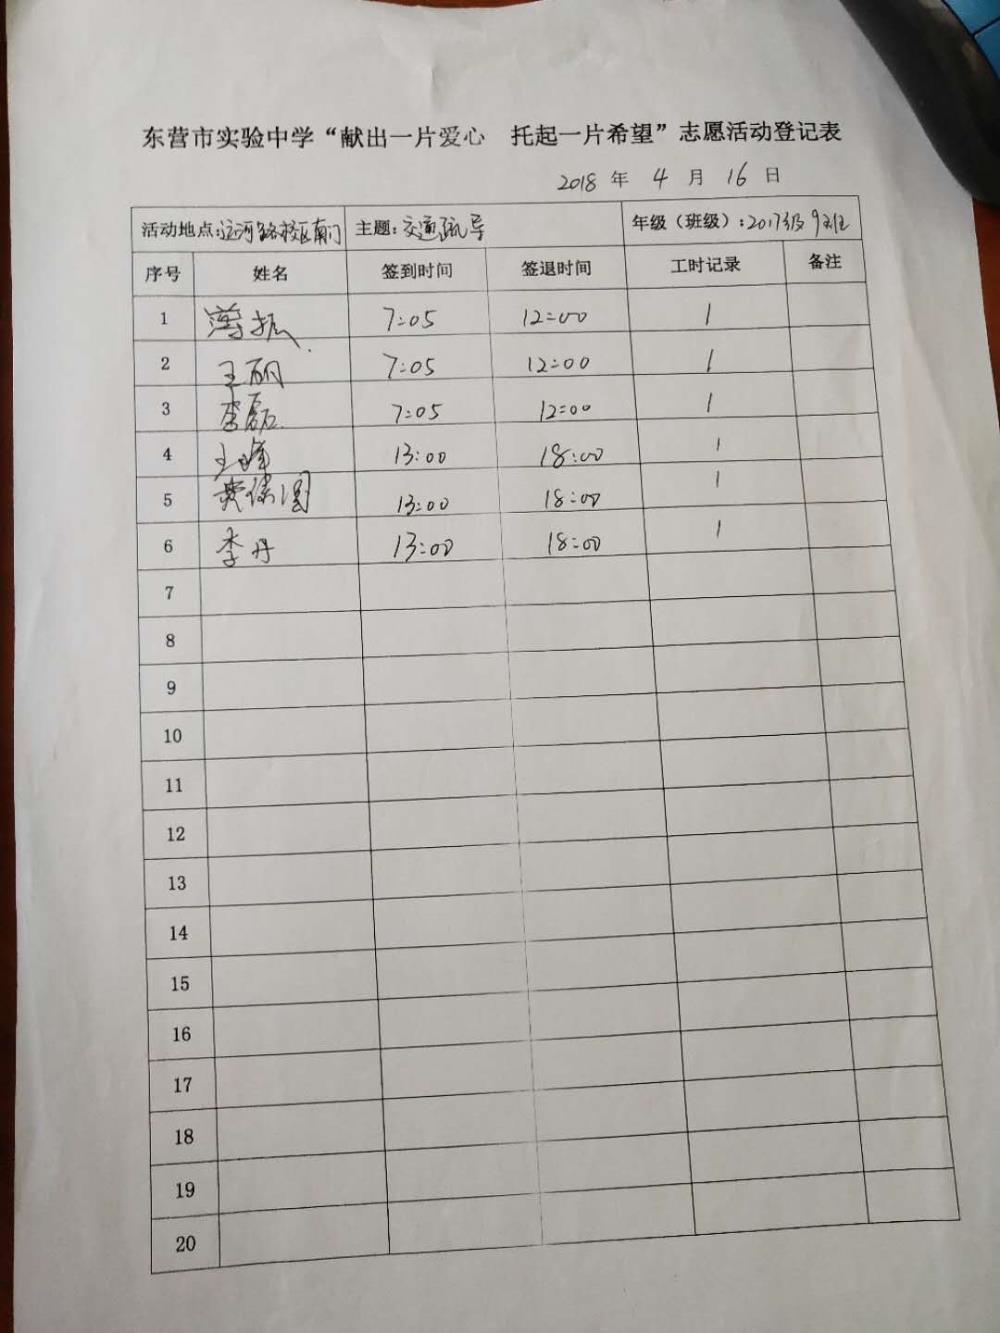 东营市实验中学“献出一片爱心 托起一片希望”志愿活动登记表
2018 年 4 月 16 日
活动地点:运河路校区南门 主题:交通疏导 年级（班级）:2017级9班
序号 姓名 签到时间 签退时间 工时记录 备注
1 薄振 7:05 12:00 1
2 王丽 7:05 12:00 1
3 李磊 7:05 12:00 1
4 王峰 13:00 18:00 1
5 13:00 18:00 1
6 李丹 13:00 18:00 1
7
8
9
10
11
12
13
14
15
16
17
18
19
20